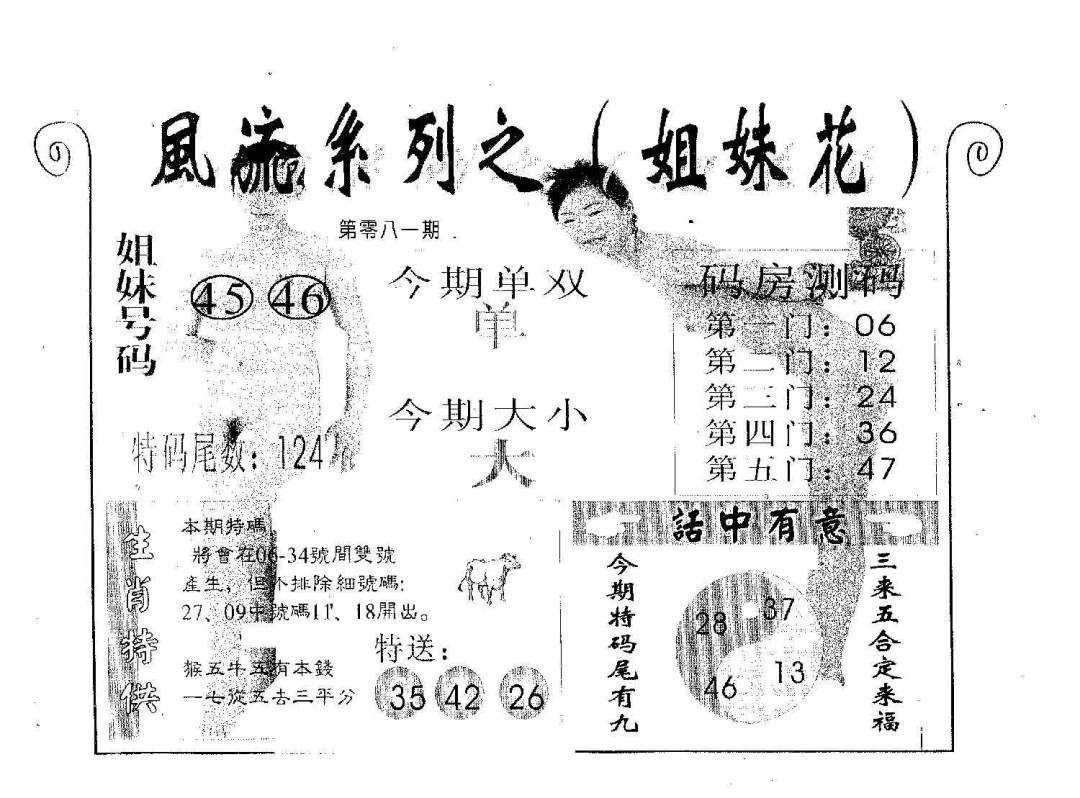 風流系列之（姐妹花）
第零八一期
姐妹号码
45 46
特码尾数：124
今期单双
单
今期大小
大
码房测码
第一门：06
第二门：12
第三门：24
第四门：36
第五门：47
生肖特供
本期特碼
將會在06-34號間雙號
產生，但不排除細號碼:
27、09中號碼11、18開出。
猴五牛五有本錢
一七從五去三平分
特送：
35 42 26
話中有意
今期特码尾有九
28 37
46 13
三来五合定来福